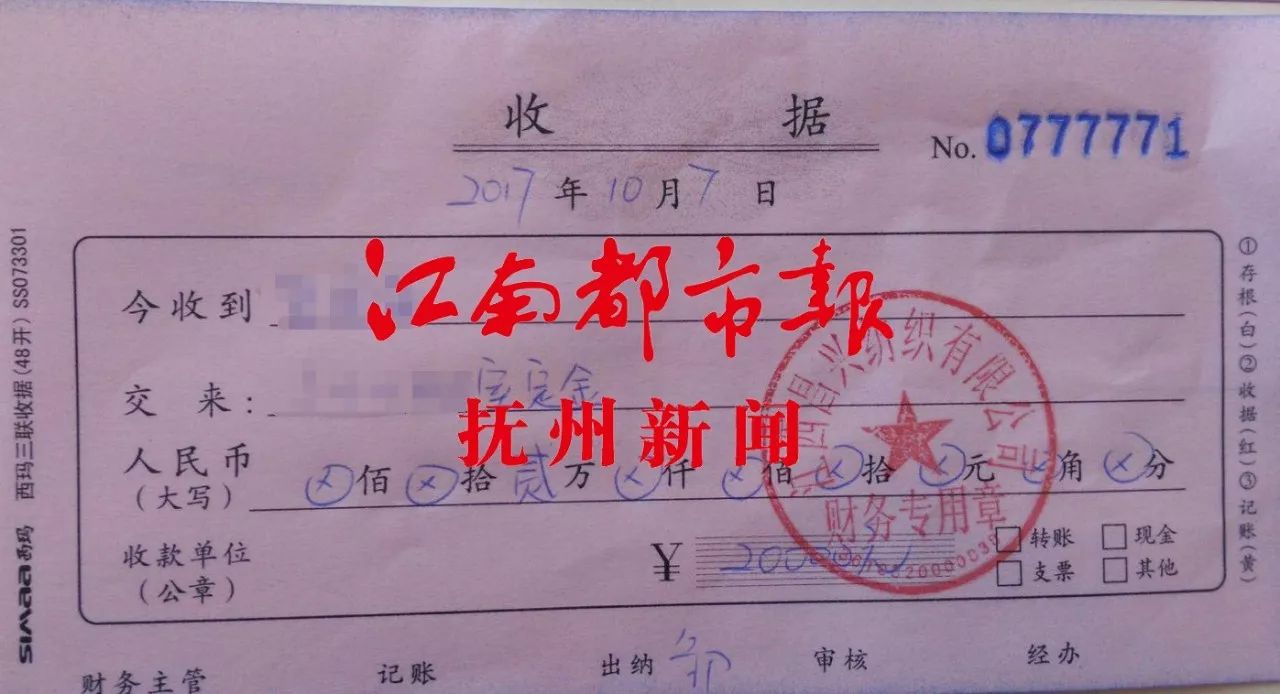 收 据
No. 0777771
2017年10月7日
今收到
江南都市報
交 来：室定金
抚州新闻
人民币（大写）ⓧ佰ⓧ拾贰万ⓧ仟ⓧ佰ⓧ拾ⓧ元ⓧ角ⓧ分
收款单位（公章）
￥
江西昌兴纺织有限公司
财务专用章
□转账 □现金
□支票 □其他
财务主管 记账 出纳 审核 经办
①存根(白)②收据(红)③记账(黄)
simaa 西玛 西玛三联收据(48开) SS073301